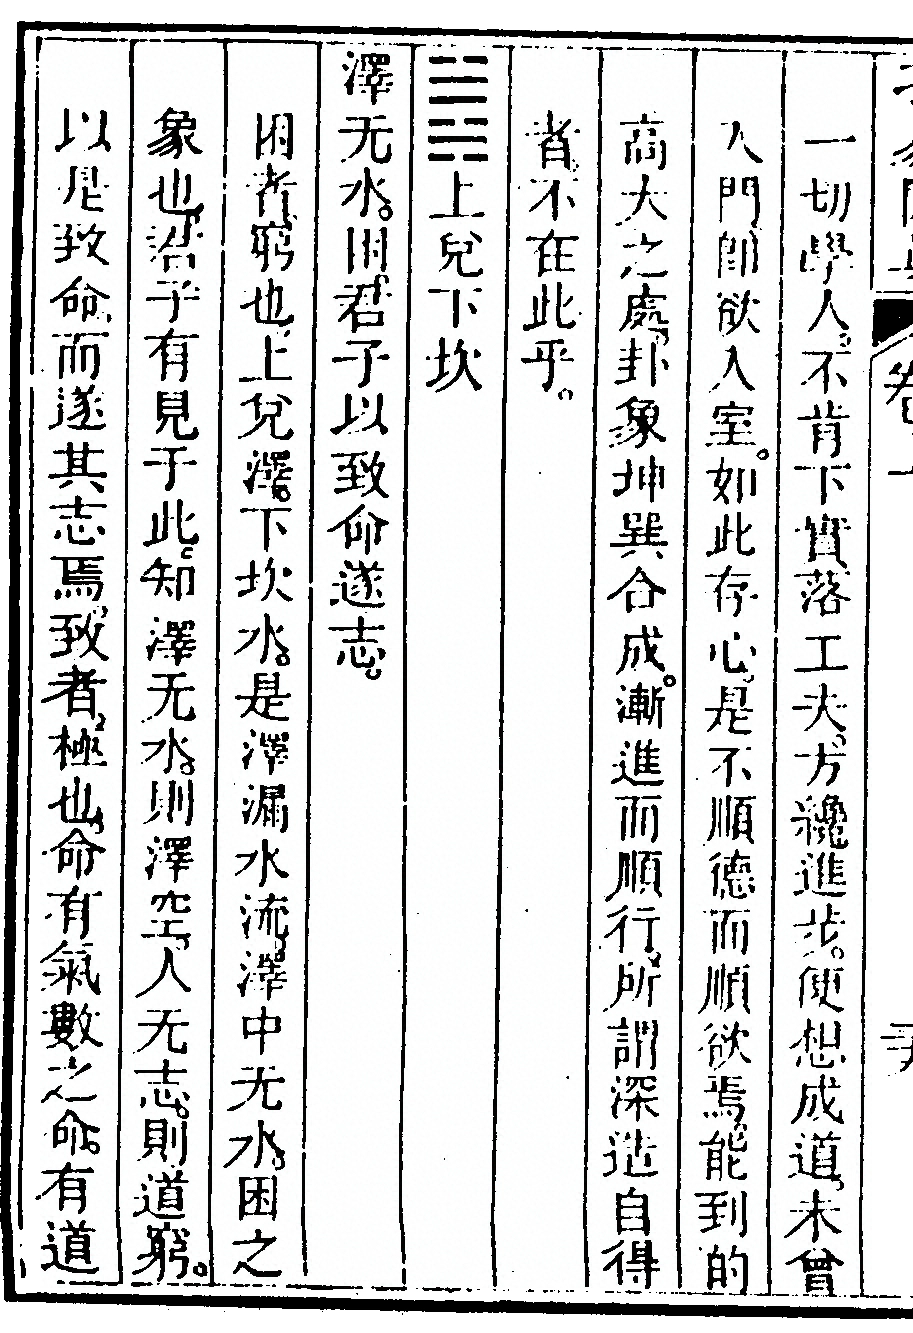 一切學人。不肯下實落工夫。方纔進步。便想成道。未曾
入門。卽欲入室。如此存心。是不順德而順欲焉。能到的
高大之處。卦象坤巽合成。漸進而順行。所謂深造自得
者。不在此乎。
䷮上兌下坎
澤无水。困。君子以致命遂志。
困者。窮也。上兌澤。下坎水。是澤漏水流。澤中无水。困之
象也。君子有見于此。知澤无水。則澤空。人无志。則道窮。
以是致命。而遂其志焉。致者。極也。命有氣數之命。有道